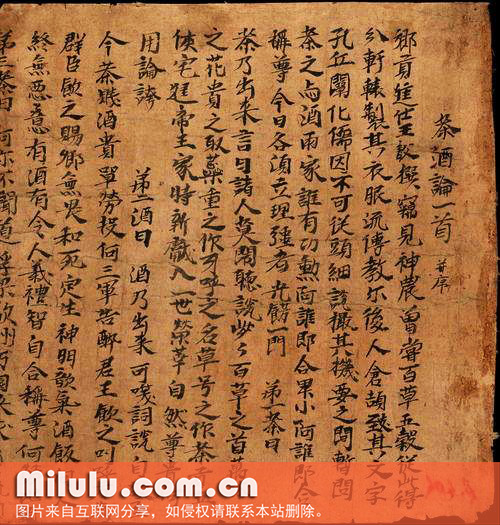 茶酒論一首 并序
鄉貢進士王敷撰 竊見神農曾嘗百草五穀從此得
分軒轅製其衣服流傳教示後人倉頡致其文字
孔丘闡化儒因不可從頭細說撮其樞要之陳暫問
茶之与酒兩家誰有功勳阿誰即合卑小阿誰即合
稱尊今日各須立理強者光飾一門 第一茶曰
茶乃出來言曰諸人莫鬧聽說些々百草之首萬
之花貴之取蘂重之作牙呼之名草号之作茶
侯宅 帝王家時新獻入一世榮華自然尊
用論誇 第二酒曰 酒乃出來可咲詞說自
今茶賤酒貴單勞投河三軍告醉君王飲之叫
群臣飲之賜卿無畏和死定生神明歆氣酒飯
終無惡意有酒有令人義禮智自合稱尊何
第三茶曰 阿你不聞道浮梁歙州万國來求
Milulu.com.cn
图片来自互联网分享，如侵权请联系本站删除。